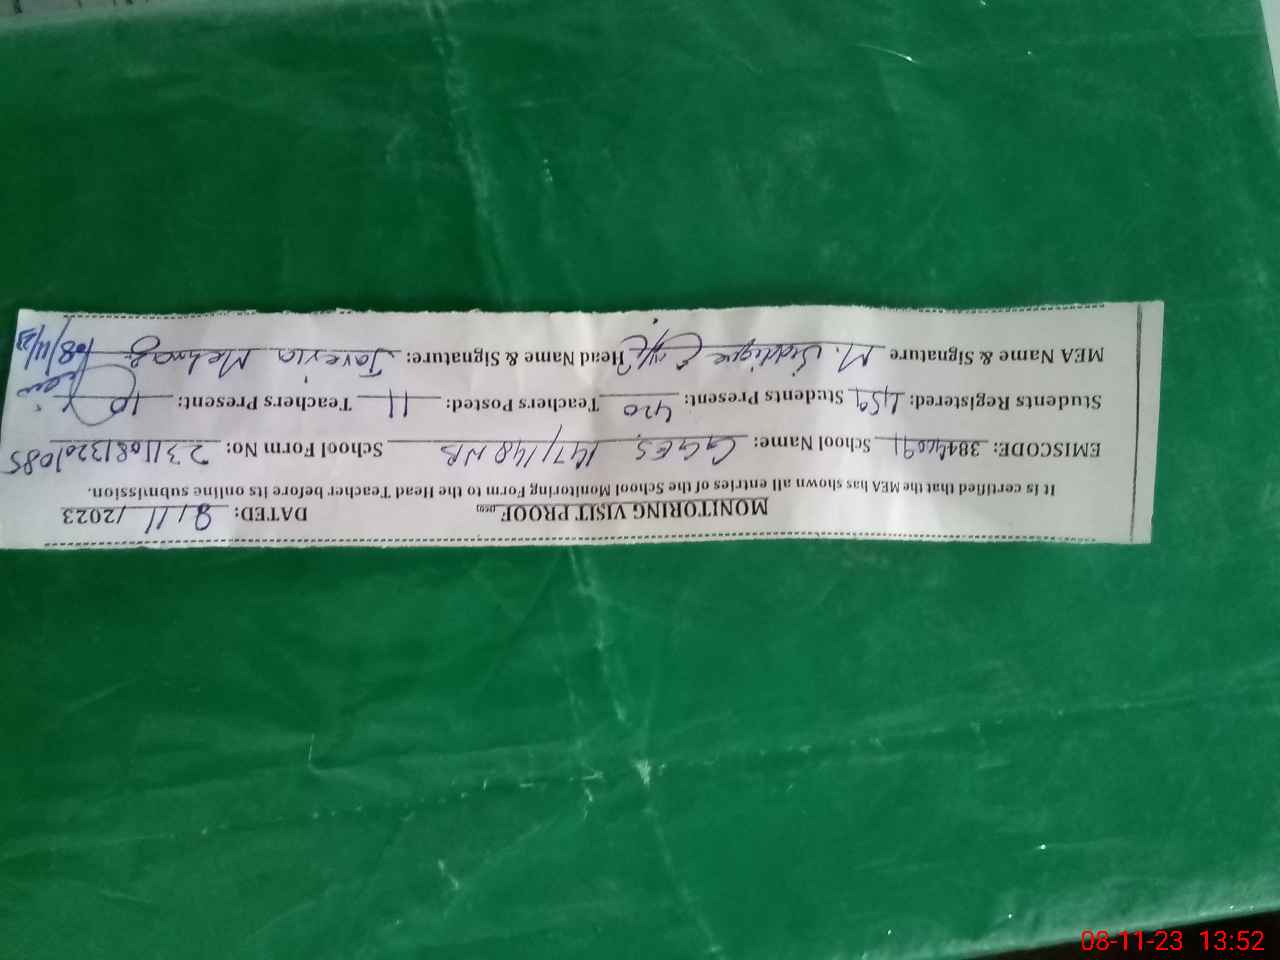 MONITORING VISIT PROOF DATED: 8/11/2023
It is certified that the MEA has shown all entries of the School Monitoring Form to the Head Teacher before its online submission.
EMISCODE: 38444091 School Name: GGES 147/148 NB School Form No: 23110813201085
Students Registered: 459 Students Present: 420 Teachers Posted: 11 Teachers Present: 10
MEA Name & Signature M. Siddique Head Name & Signature: Javeria Mehnaz 08/11/23
08-11-23 13:52